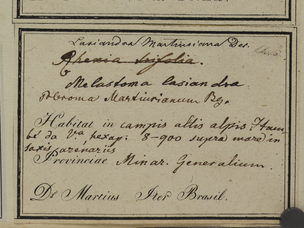 Lasiandra Martiusiana Dec.
Rhexia trifolia.
Melastoma lasiandra
Martiusianum
Habitat in campis altis alpis:
et da Va 8-900 supra mare in
saxis arenariis
Provinciae Minar. Generalium.
Dr Martius Iter Brasil.